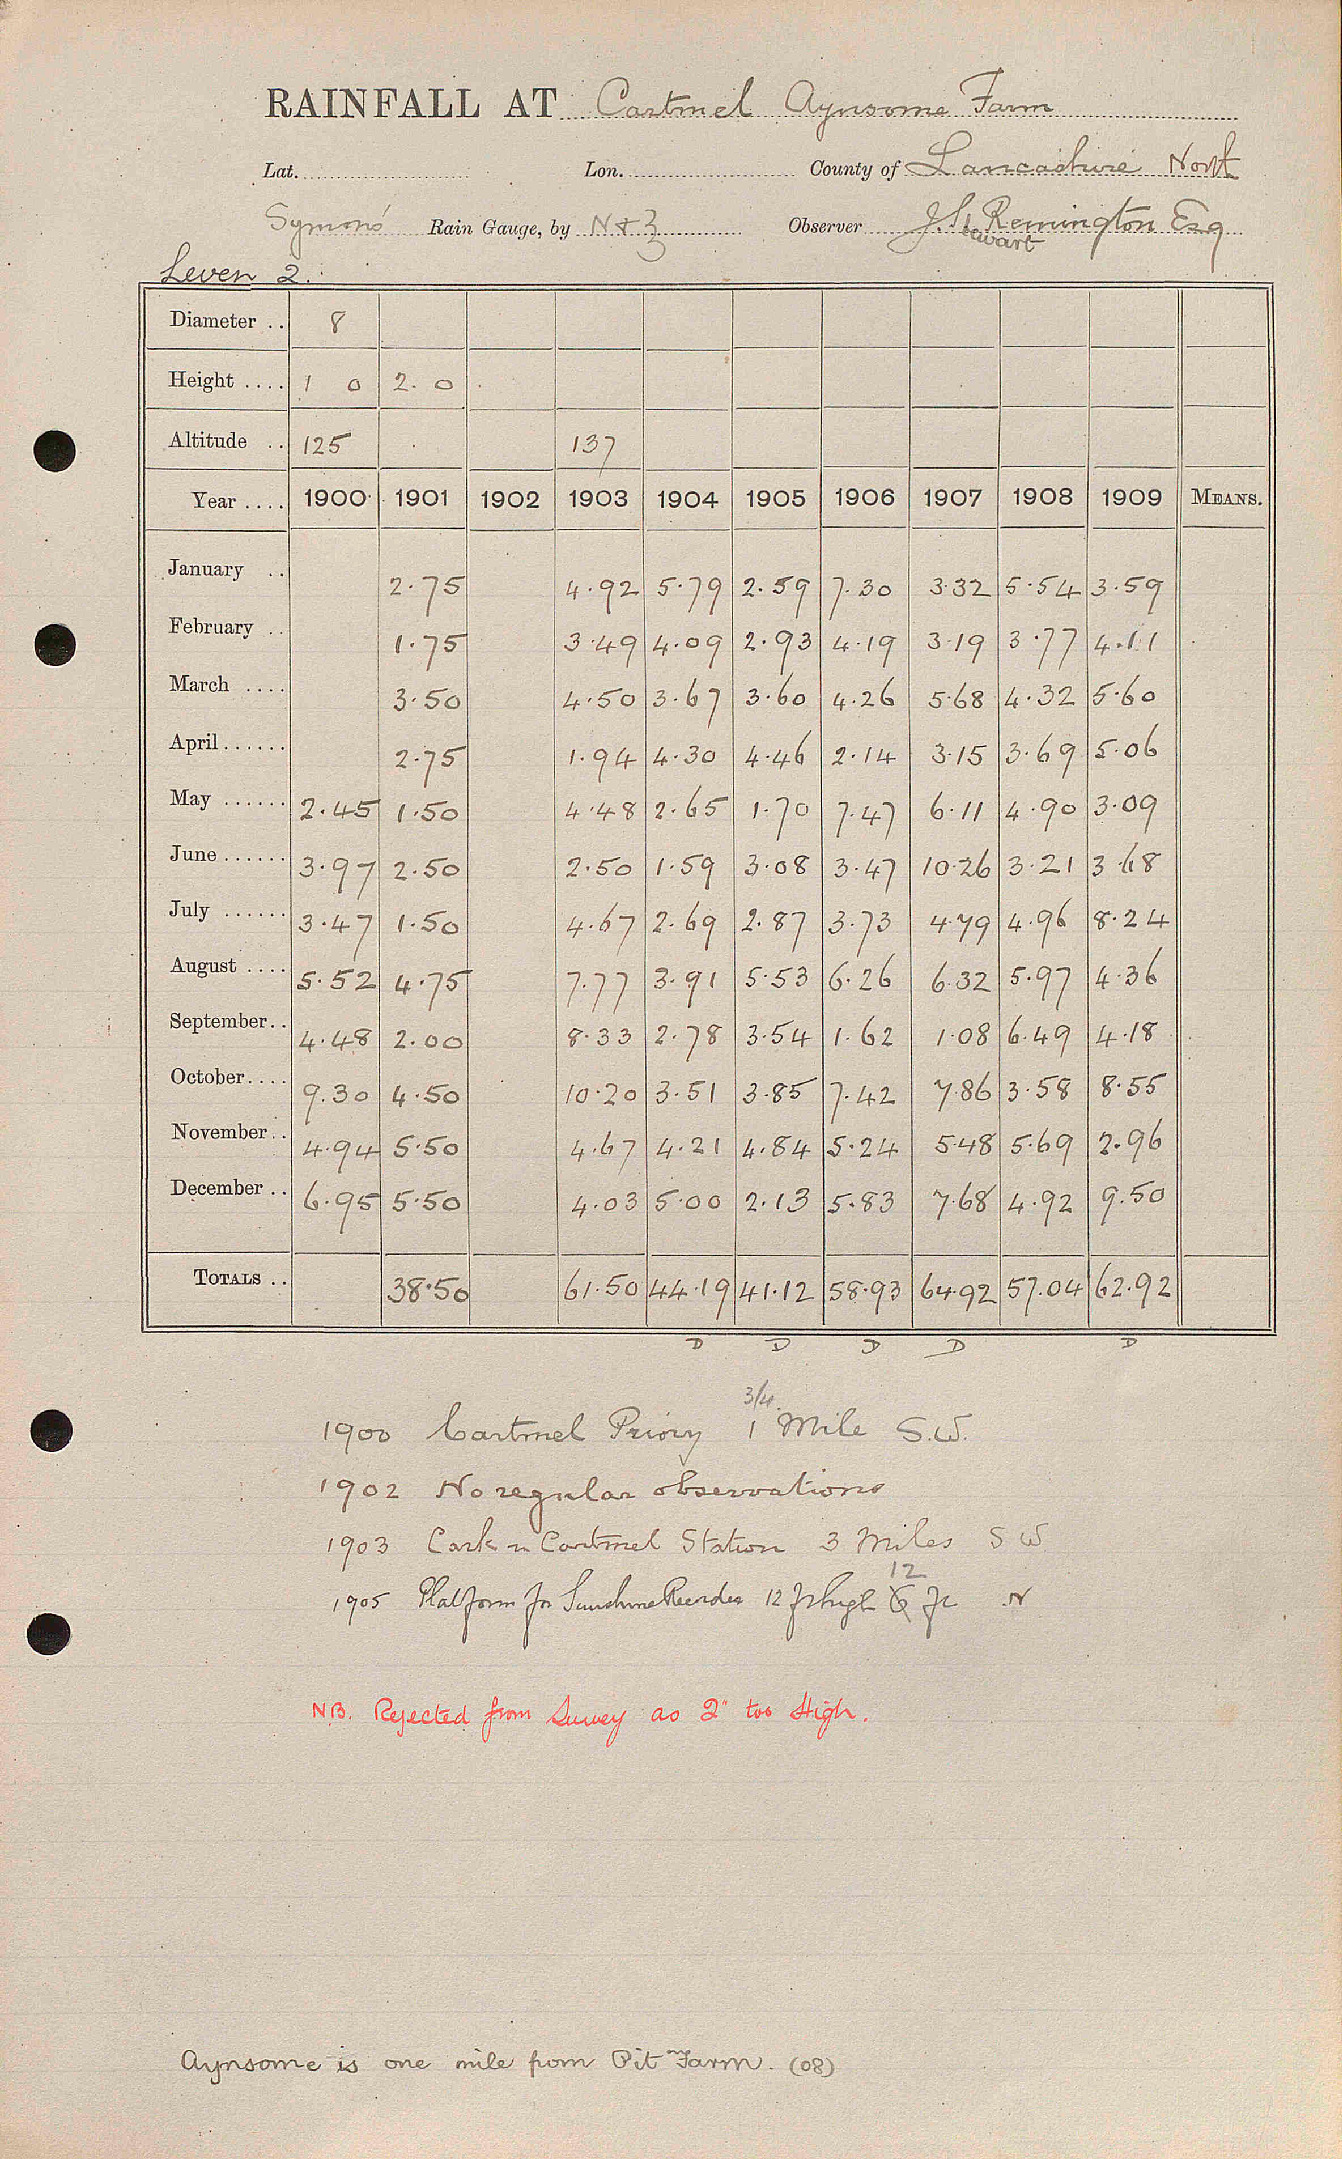 RAINFALL AT Cartmel Aynsome Farm
Lat. Lon. County of Lancashire North
Symons' Rain Gauge, by N & Z Observer J. Stewart Remington Esq
Leven 2.
Diameter .. 8
Height .... 1 0 2. 0
Altitude .. 125 137
Year .... 1900 1901 1902 1903 1904 1905 1906 1907 1908 1909 MEANS.
January .. 2.75 4.92 5.79 2.59 7.30 3.32 5.54 3.59
February .. 1.75 3.49 4.09 2.93 4.19 3.19 3.77 4.11
March .... 3.50 4.50 3.67 3.60 4.26 5.68 4.32 5.60
April ...... 2.75 1.94 4.30 4.46 2.14 3.15 3.69 5.06
May ...... 2.45 1.50 4.48 2.65 1.70 7.47 6.11 4.90 3.09
June ...... 3.97 2.50 2.50 1.59 3.08 3.47 10.26 3.21 3.68
July ...... 3.47 1.50 4.67 2.69 2.87 3.73 4.79 4.96 8.24
August .... 5.52 4.75 7.77 3.91 5.53 6.26 6.32 5.97 4.36
September .. 4.48 2.00 8.33 2.78 3.54 1.62 1.08 6.49 4.18
October .... 9.30 4.50 10.20 3.51 3.85 7.42 7.86 3.58 8.55
November .. 4.94 5.50 4.67 4.21 4.84 5.24 5.48 5.69 2.96
December .. 6.95 5.50 4.03 5.00 2.13 5.83 7.68 4.92 9.50
TOTALS .. 38.50 61.50 44.19 41.12 58.93 64.92 57.04 62.92
D D D D D
3/4
1900 Cartmel Priory 1 Mile S.W.
1902 No regular observations
1903 Cark in Cartmel Station 3 Miles S W
12
1905 Platform for Sunshine Recorder 12 ft high 6 ft N
NB. Rejected from Survey as 2" too High.
Aynsome is one mile from Pit Farm. (08)